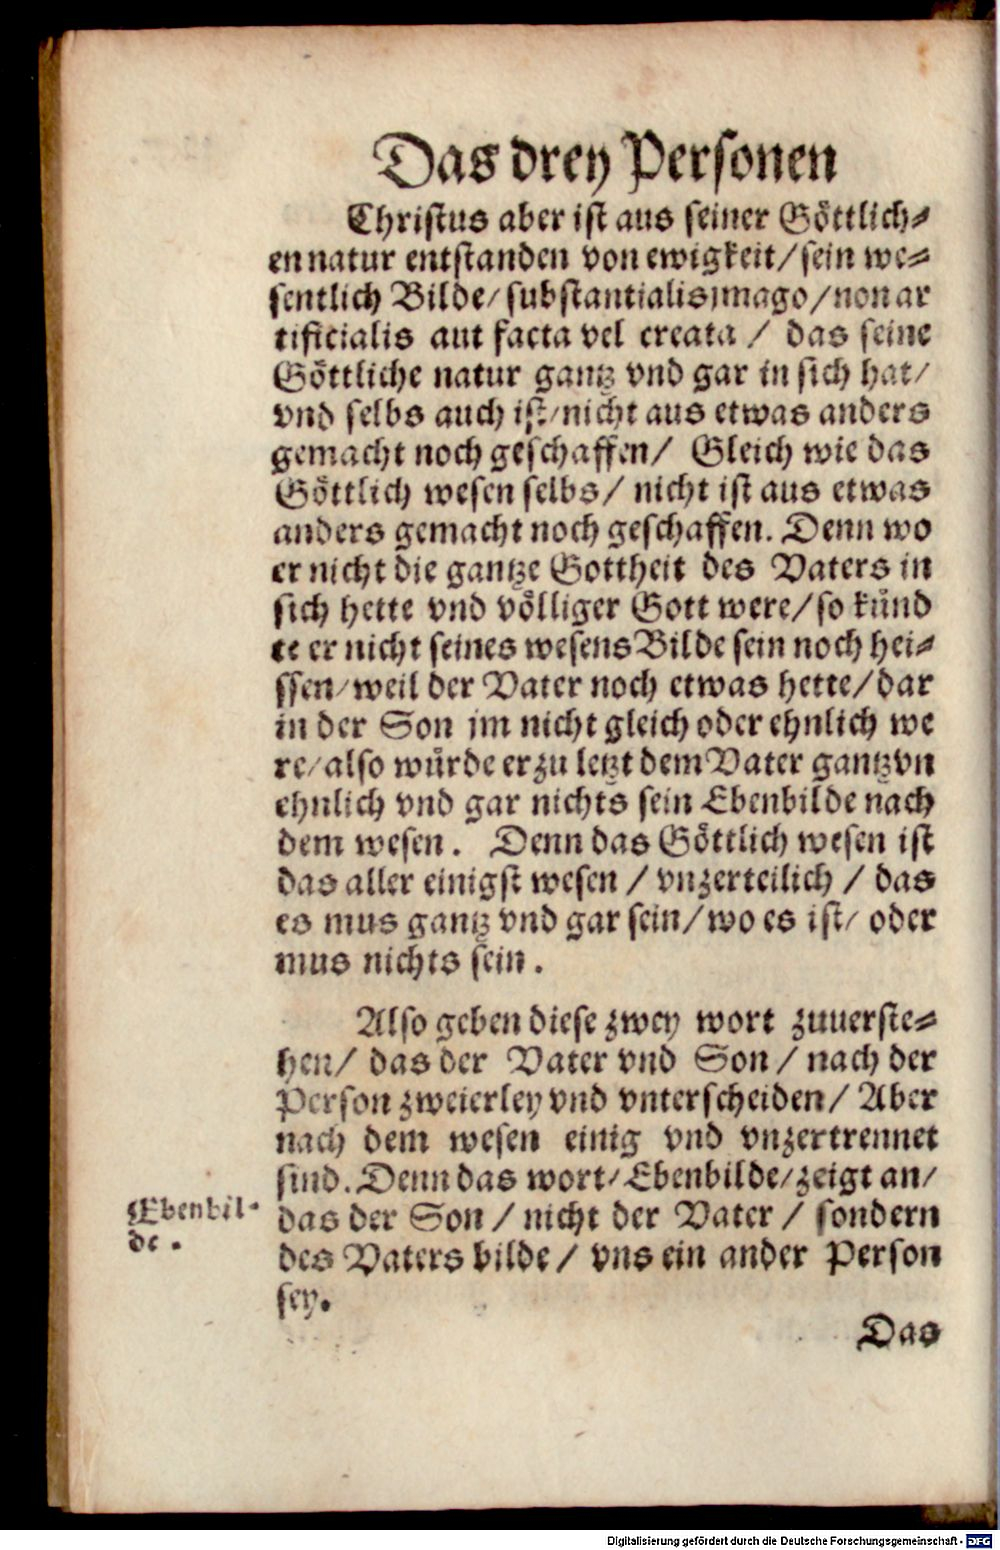 Das drey Personen
Christus aber ist aus seiner Göttlich⸗
en natur entstanden von ewigkeit/ sein we⸗
sentlich Bilde/ substantialis imago/ non ar
tificialis aut facta vel creata / das seine
Göttliche natur gantz vnd gar in sich hat/
vnd selbs auch ist/ nicht aus etwas anders
gemacht noch geschaffen/ Gleich wie das
Göttlich wesen selbs/ nicht ist aus etwas
anders gemacht noch geschaffen. Denn wo
er nicht die gantze Gottheit des Vaters in
sich hette vnd völliger Gott were/ so künd
te er nicht seines wesens Bilde sein noch hei⸗
ssen/ weil der Vater noch etwas hette/ dar
in der Son jm nicht gleich oder ehnlich we
re/ also würde er zu letzt dem Vater gantz vn
ehnlich vnd gar nichts sein Ebenbilde nach
dem wesen. Denn das Göttlich wesen ist
das aller einigst wesen / vnzerteilich / das
es mus gantz vnd gar sein/ wo es ist/ oder
mus nichts sein.
Also geben diese zwey wort zuuerste⸗
hen/ das der Vater vnd Son / nach der
Person zweierley vnd vnterscheiden/ Aber
nach dem wesen einig vnd vnzertrennet
sind. Denn das wort/ Ebenbilde/ zeigt an/
Ebenbil⸗
de.
das der Son / nicht der Vater / sondern
des Vaters bilde / vns ein ander Person
sey.
Das
Digitalisierung gefördert durch die Deutsche Forschungsgemeinschaft - DFG